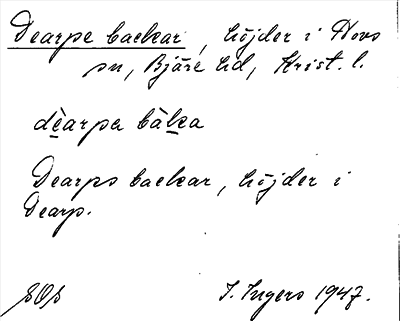 Dearps backar, höjder i Hovs
sn, Bjäre hd, Krist. l.
dèarpa bàka
Dearps backar, höjder i
Dearp.
I. Ingers 1947.